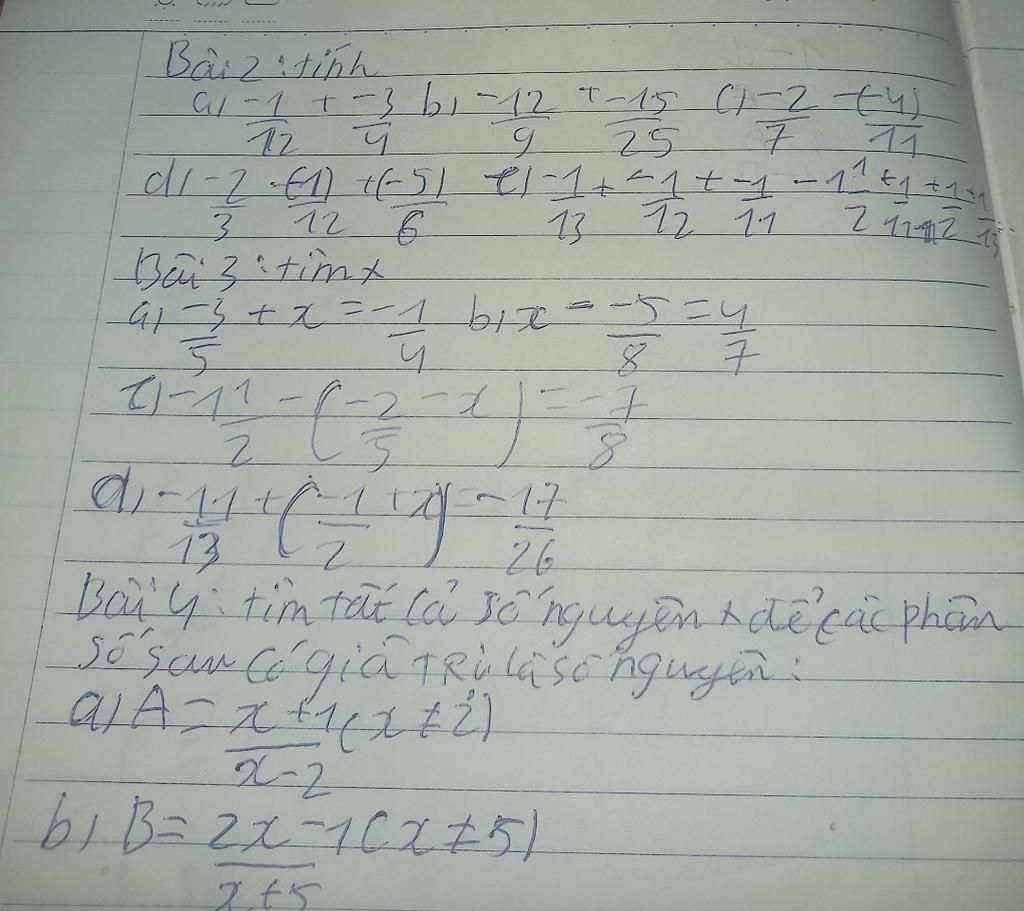 Bài 2: tính
a) -1/12 + -3/4 b) -12/9 + -15/25 c) -2/7 - (-4)/11
d) -2/3 - (-1)/12 + (-5)/6 e) -1/13 + -1/12 + -1/11 - 1 1/2 + 1/11 + 1/12 + 1/13
Bài 3: tìm x
a) -3/5 + x = -1/4 b) x = -5/8 = 4/7
c) -11/2 - (-2/5 - x) = -7/8
d) -11/13 + (-1/2 + x) = -17/26
Bài 4: tìm tất cả số nguyên x để các phân
số sau có giá trị là số nguyên:
a) A = x+1/x-2 (x ≠ 2)
b) B = 2x-1/x+5 (x ≠ 5)